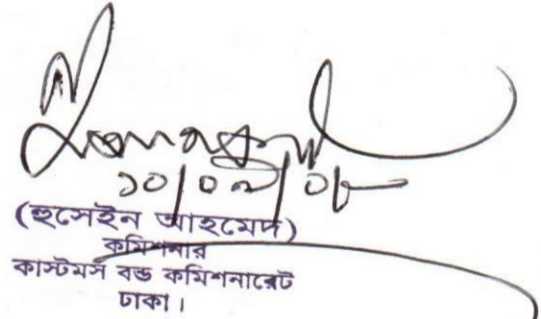 ১০/০৯/০৮
(হুসেইন আহমেদ)
কমিশনার
কাস্টমস বন্ড কমিশনারেট
ঢাকা।